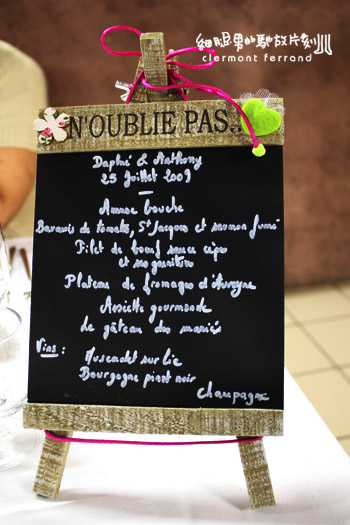 細腿男的馳放片刻
clermont ferrand
N'OUBLIE PAS...
Daphné & Anthony
25 Juillet 2009
Amuse bouche
Bavarois de tomate, St Jacques et saumon fumé
Filet de bœuf sauce cèpes
et ses garnitures
Plateau de fromages d'Auvergne
Assiette gourmande
Le gâteau des mariés
Vins :
Muscadet sur lie
Bourgogne pinot noir
Champagne